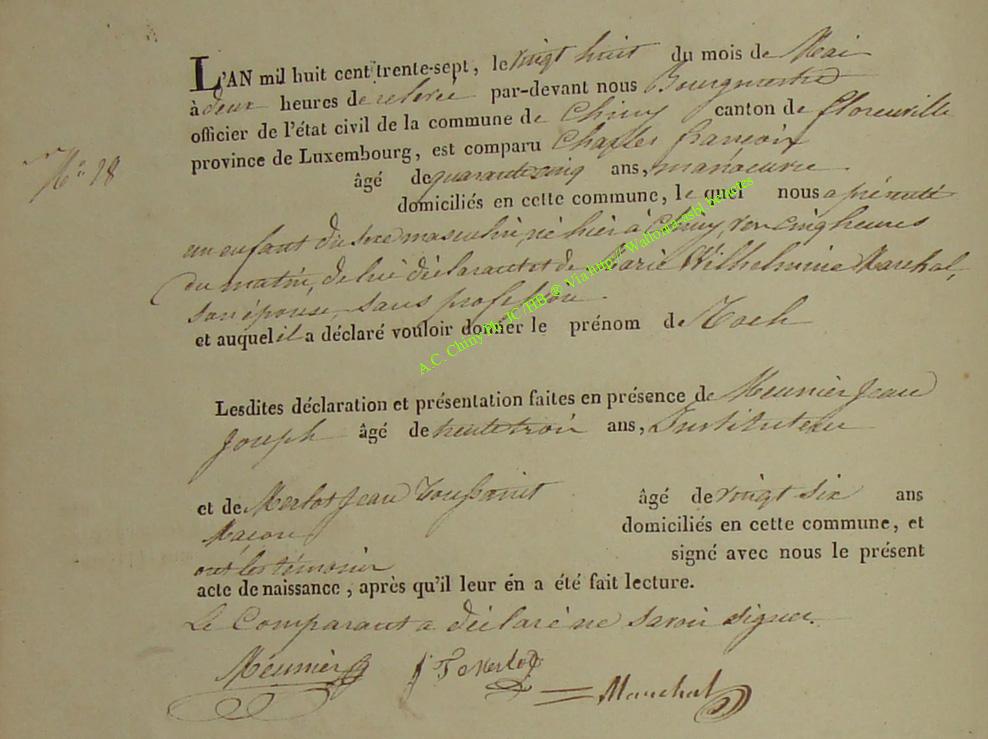 L'AN mil huit cent trente-sept, le vingt huit du mois de Mai
à deux heures de relevée par-devant nous Bourgmestre
officier de l'état civil de la commune de Chiny canton de Florenville
province de Luxembourg, est comparu Charles françois
N° 18
âgé de quarante cinq ans, manoeuvre
domiciliés en cette commune, le quel nous a présenté
un enfant du sexe masculin, né hier à Chiny, vers cinq heures
du matin, de lui déclarant et de Marie Wilhelmine Marechal,
son épouse, sans profession.
et auquel il a déclaré vouloir donner le prénom de Roch
Lesdites déclaration et présentation faites en présence de Meunier Jean
Joseph âgé de trente trois ans, Instituteur
et de Merlot Jean Toussaint âgé de vingt six ans
Maçon domiciliés en cette commune, et
ont les témoins signé avec nous le présent
acte de naissance, après qu'il leur en a été fait lecture.
Le Comparant a déclaré ne savoir signer.
Meunier JT Merlot Marechal
A.C. Chiny Ph JC /HB ® Via http:// Wallonia-asbl benevoles